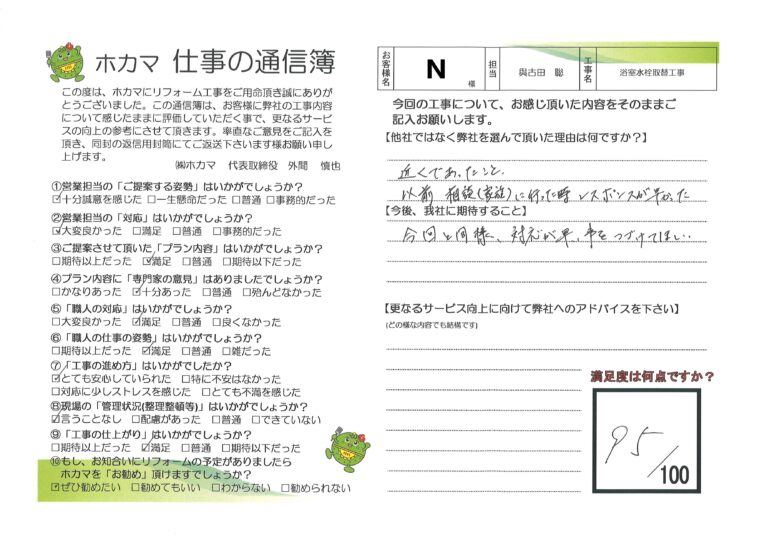 ホカマ 仕事の通信簿
この度は、ホカマにリフォーム工事をご用命頂き誠にありが
とうございました。この通信簿は、お客様に弊社の工事内容
について感じたままに評価していただく事で、更なるサービ
スの向上の参考にさせて頂きます。率直なご意見をご記入を
頂き、同封の返信用封筒にてご返送下さいます様お願い申し
上げます。
㈱ホカマ 代表取締役 外間 慎也
①営業担当の「ご提案する姿勢」はいかがでしょうか?
☑十分誠意を感じた □一生懸命だった □普通 □事務的だった
②営業担当の「対応」はいかがでしょうか?
☑大変良かった □満足 □普通 □事務的だった
③ご提案させて頂いた「プラン内容」はいかがでしょうか?
□期待以上だった ☑満足 □普通 □期待以下だった
④プラン内容に「専門家の意見」はありましたでしょうか?
□かなりあった ☑十分あった □普通 □殆んどなかった
⑤「職人の対応」はいかがでしょうか?
□大変良かった ☑満足 □普通 □良くなかった
⑥「職人の仕事の姿勢」はいかがでしょうか?
□期待以上だった ☑満足 □普通 □雑だった
⑦「工事の進め方」はいかがでしたか?
☑とても安心していられた □特に不安はなかった
□対応に少しストレスを感じた □とても不満を感じた
⑧現場の「管理状況(整理整頓等)」はいかがでしょうか?
☑言うことなし □配慮があった □普通 □できていない
⑨「工事の仕上がり」はいかがでしょうか?
□期待以上だった ☑満足 □普通 □期待以下だった
⑩もし、お知合いにリフォームの予定がありましたら
ホカマを「お勧め」頂けますでしょうか?
☑ぜひ勧めたい □勧めてもいい □わからない □勧められない
お客様名 N 様 担当 與古田 聡 工事名 浴室水栓取替工事
今回の工事について、お感じ頂いた内容をそのままご
記入お願いします。
【他社ではなく弊社を選んで頂いた理由は何ですか?】
近くであったこと.
以前 相談(家族)に行った時 レスポンスが早かった
【今後、我社に期待すること】
今回と同様、対応が早い事をつづけてほしい..
【更なるサービス向上に向けて弊社へのアドバイスを下さい】
(どの様な内容でも結構です)
満足度は何点ですか?
95/100